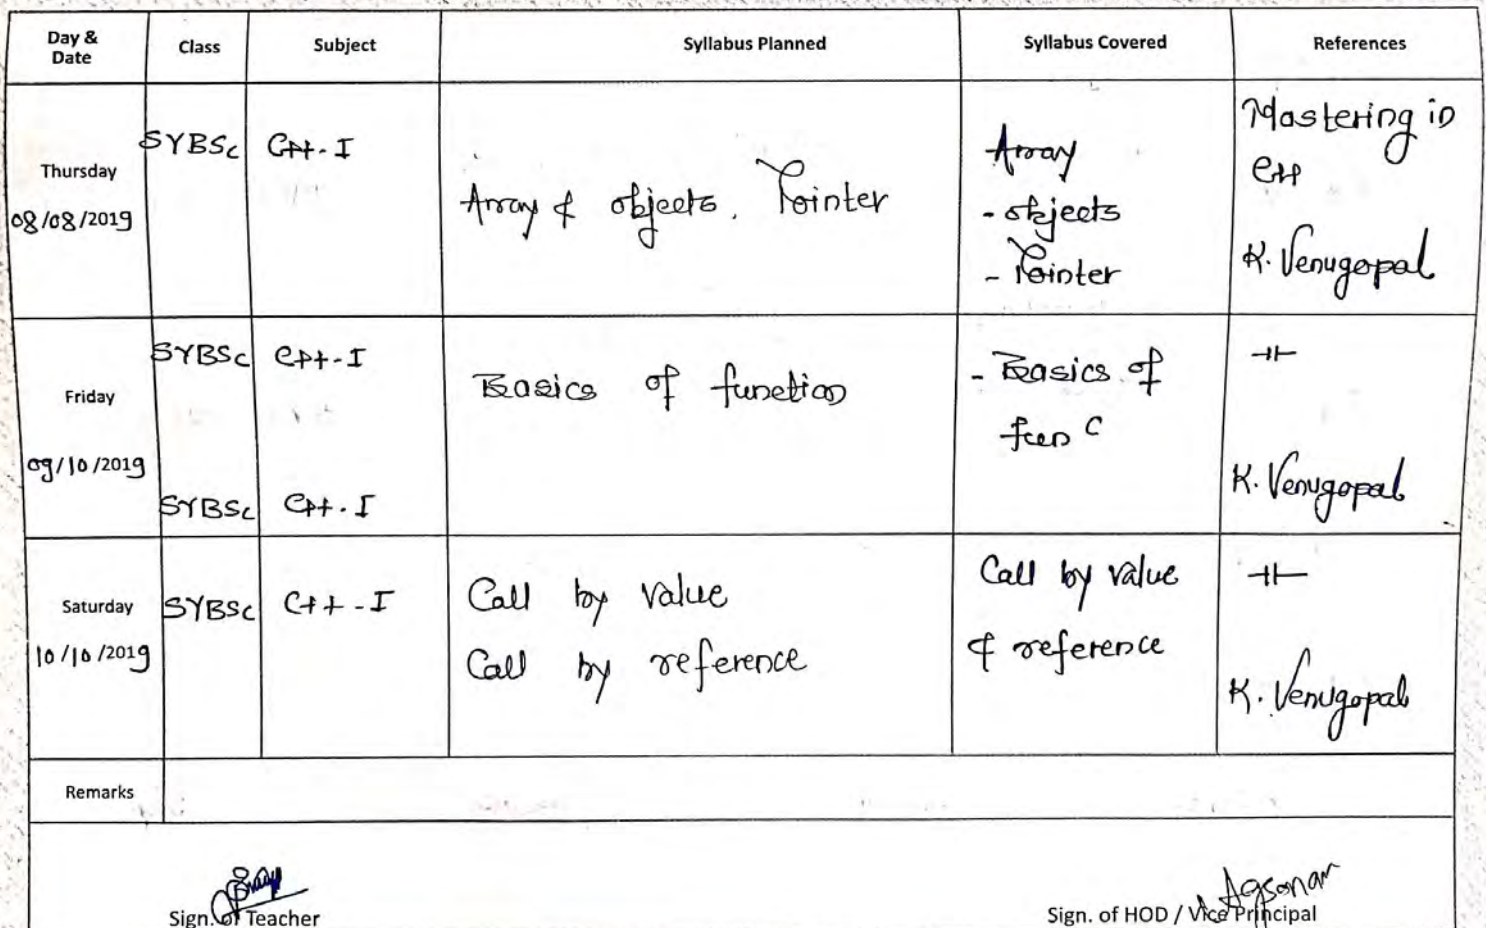 Day & Date Class Subject Syllabus Planned Syllabus Covered References
Thursday
08/08/2019
SYBSc
C++-I
Array & objects, Pointer
Array
- objects
- Pointer
Mastering in
C++
K. Venugopal
Friday
09/10/2019
SYBSc
C++-I
SYBSc
C++-I
Basics of function
- Basics of
fun C
-11-
K. Venugopal
Saturday
10/10/2019
SYBSc
C++-I
Call by value
Call by reference
Call by value
& reference
-11-
K. Venugopal
Remarks
Agsonar
Sign. of Teacher
Sign. of HOD / Vice Principal